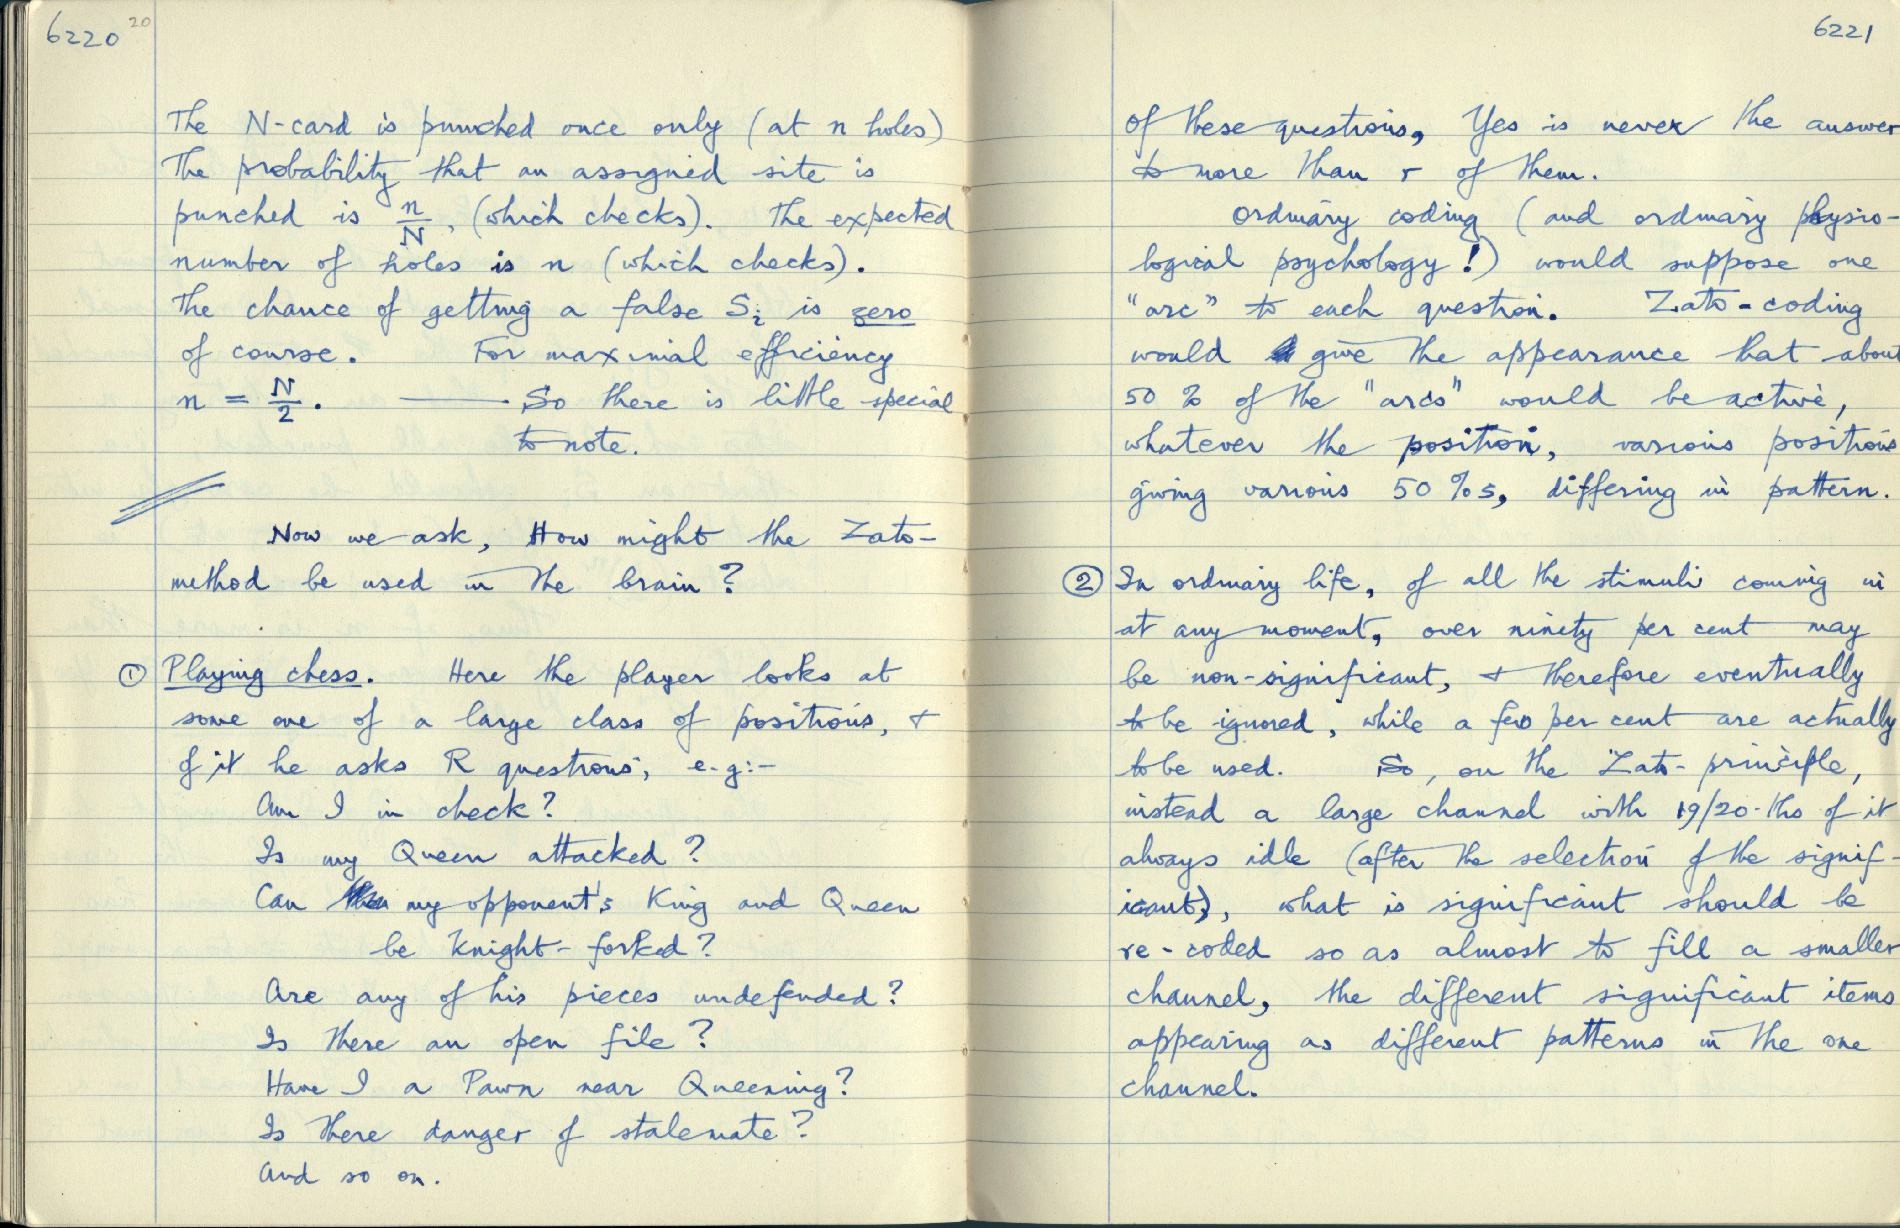 6220 20
The N-card is punched once only (at n holes)
The probability that an assigned site is
punched is n/N, (which checks). The expected
number of holes is n (which checks).
The chance of getting a false Si is zero
of course. For maximal efficiency
n = N/2. —— So there is little special
to note.
Now we ask, How might the Zato-
method be used in the brain?
① Playing chess. Here the player looks at
some one of a large class of positions, &
of it he asks R questions, e.g:-
Am I in check?
Is my Queen attacked?
Can my opponent's King and Queen
be Knight-forked?
Are any of his pieces undefended?
Is there an open file?
Have I a Pawn near Queening?
Is there danger of stalemate?
And so on.
6221
Of these questions, Yes is never the answer
to more than r of them.
Ordinary coding (and ordinary physio-
logical psychology!) would suppose one
"arc" to each question. Zato-coding
would give the appearance that about
50 % of the "arcs" would be active,
whatever the position, various positions
giving various 50 %s, differing in pattern.
② In ordinary life, of all the stimuli coming in
at any moment, over ninety per cent may
be non-significant, & therefore eventually
to be ignored, while a few per cent are actually
to be used. So, on the Zato-principle,
instead a large channel with 19/20-ths of it
always idle (after the selection of the signif-
icant), what is significant should be
re-coded so as almost to fill a smaller
channel, the different significant items
appearing as different patterns in the one
channel.